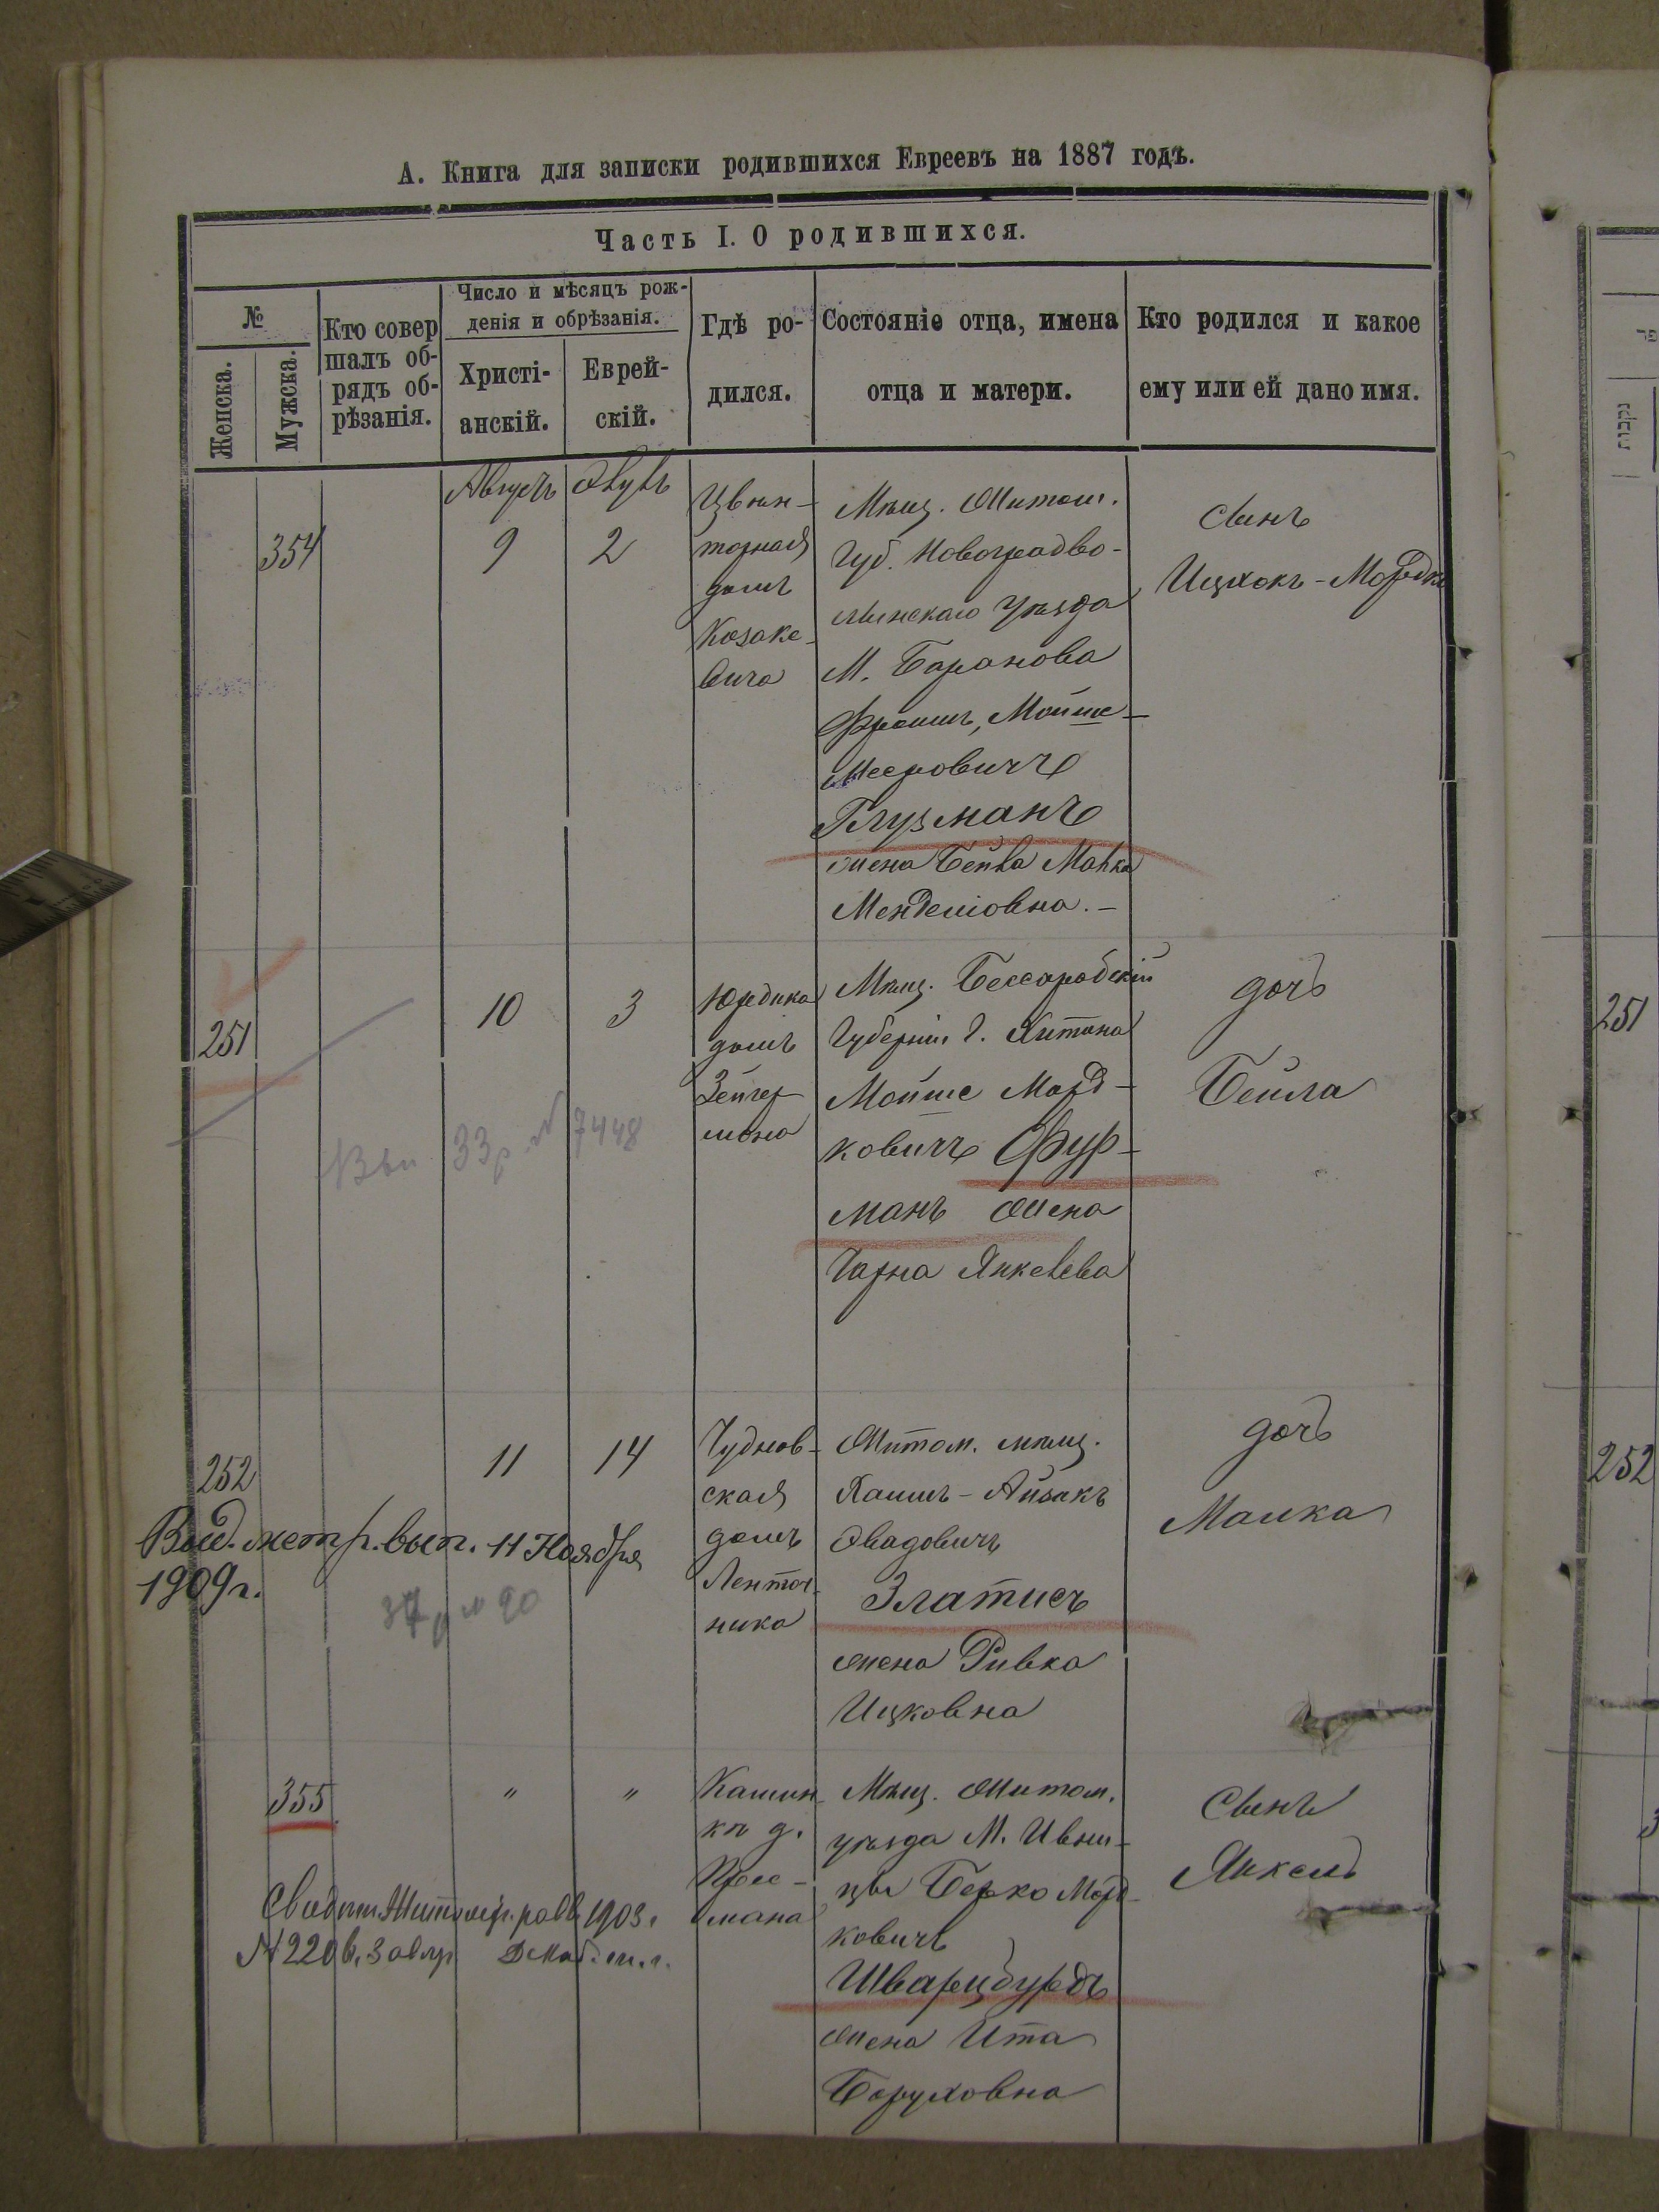 А. Книга для записки родившихся Евреевъ на 1887 годъ.
Часть I. О родившихся.
№
Женска.
Мужска.
Кто совер
шалъ об-
рядъ об-
рѣзанія.
Число и мѣсяцъ рож-
денія и обрѣзанія.
Христі-
анскій.
Еврей-
скій.
Гдѣ ро-
дился.
Состояніе отца, имена
отца и матери.
Кто родился и какое
ему или ей дано имя.
354
Августъ
9
2
Цвин-
торная
домъ
Козаке-
вича
Мѣщ. Житом.
Губ. Новоградво-
лынскаго уѣзда
М. Баранова
Фроимъ, Мойше-
Мееровичъ
Глузманъ
жена Бейла Малка
Менделіовна. -
Сынъ
Ицхокъ-Мордко
251
10
3
Юрдика
домъ
Зейгер
мана
Мѣщ. Бессарабскій
Губерніи г. Хотина
Мойше Морд-
ковичъ Фур-
манъ жена
Чарна Янкелева
дочь
Бейла
33 р. № 7448
252
11
14
Чуднов-
ская
домъ
Ленточ-
ника
Житом. мѣщ.
Хаимъ-Айзакъ
Овадовичъ
Златисъ
жена Ривка
Ицковна
дочь
Малка
Выд. метр. вып. 11 Ноября
1909 г.
37 р № 90
355
"
"
Кашин
кп д.
мана
Мѣщ. Житом.
уѣзда М. Ивни-
цы Берко Морд-
ковичъ
Шварцбурдъ
жена Ита
Боруховна
Сынъ
Янкель
1903 г.
№ 220
251
252